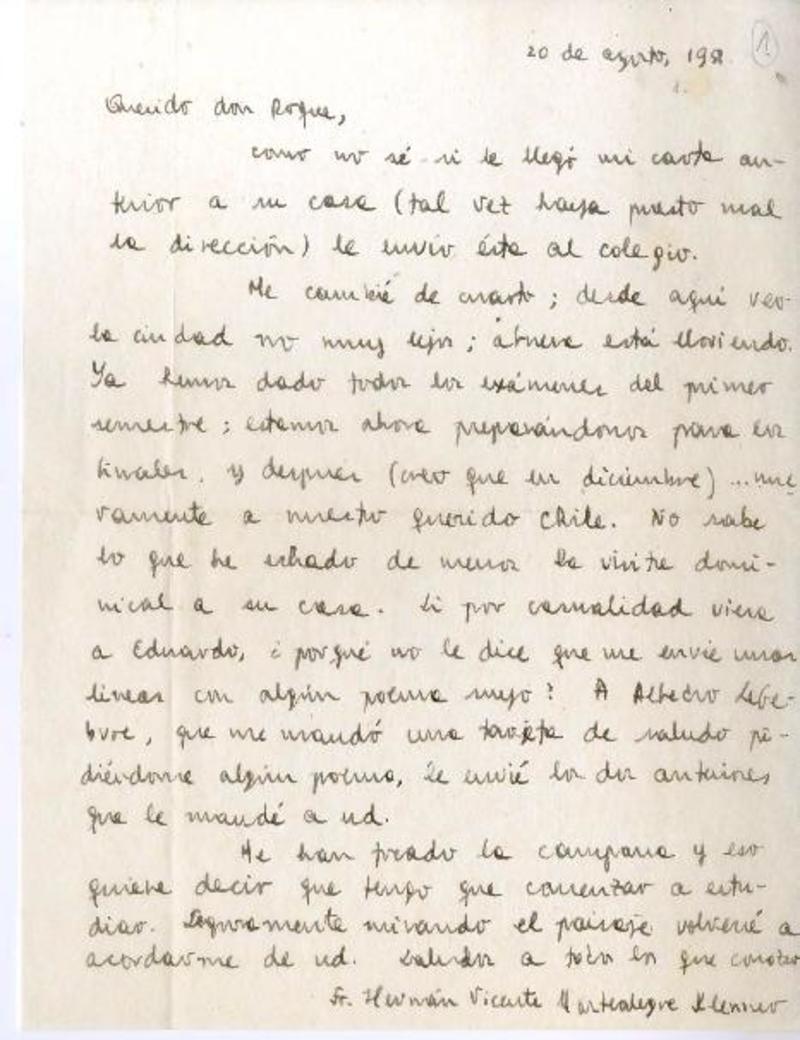 1.
20 de agosto, 195
Querido don Roque,
como no sé si le llegó mi carta an-
terior a su casa (tal vez haya puesto mal
la dirección) le envío ésta al colegio.
Me cambié de cuarto; desde aquí veo
la ciudad no muy lejos; afuera está lloviendo.
Ya hemos dado todos los exámenes del primer
semestre; estamos ahora preparándonos para los
finales, y después (creo que en diciembre) ... nue
vamente a nuestro querido Chile. No sabe
lo que he echado de menos la visita domi-
nical a su casa. Si por casualidad viera
a Eduardo, ¿porqué no le dice que me envíe unas
líneas con algún poema suyo? A Alfredo Lefe-
bvre, que me mandó una tarjeta de saludo pi-
diéndome algún poema, le envié los dos anteriores
que le mandé a ud.
Me han tocado la campana y eso
quiere decir que tengo que comenzar a estu-
diar. Seguramente mirando el paisaje volveré a
acordarme de ud. Saludos a todos los que conozco
Fr. Hernán Vicente Montealegre Klenner